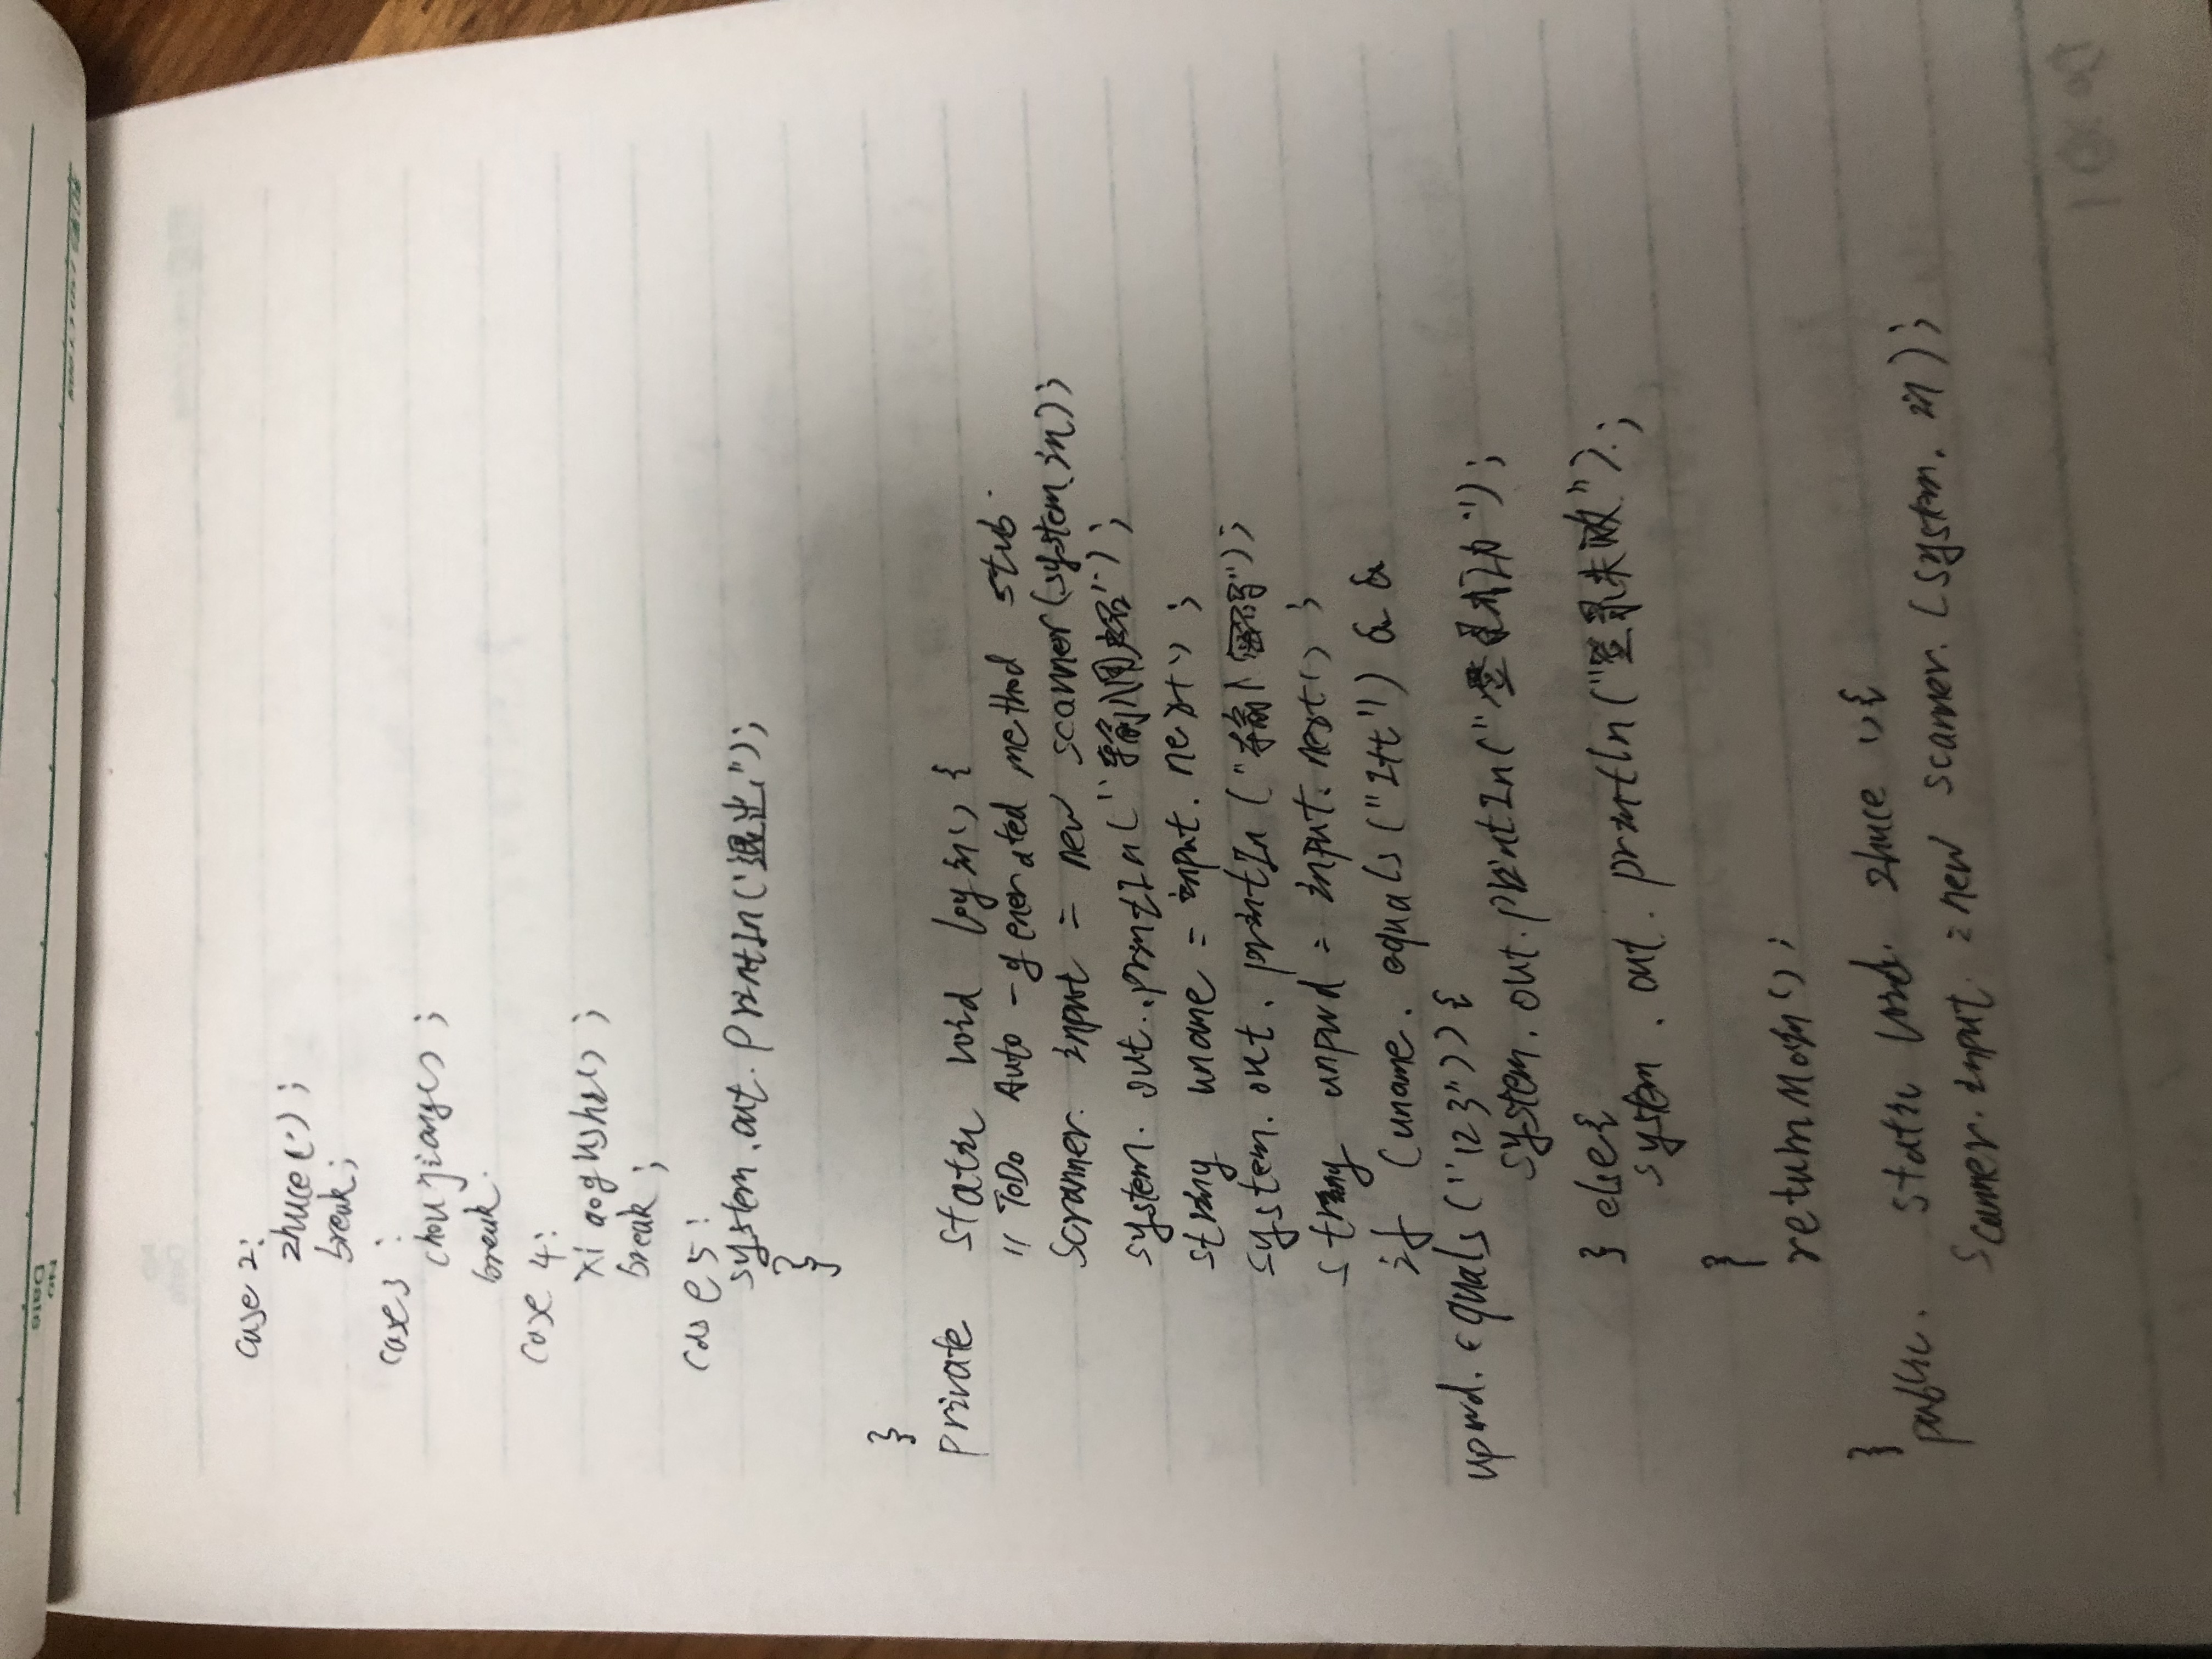 No
Date
case 2:
zhuce();
break;
case3:
choujiang();
break.
case 4:
xiaogushi();
break;
case5:
system.out.println("退出");
}
}
}
private static void login() {
// ToDo Auto-generated method stub.
Scanner input = new scanner(system.in);
system.out.println("输入用户名");
string uname = input.next();
system.out.println("输入密码");
string unpwd = input.next();
if (uname.equals("ztt") &&
upwd.equals("123")) {
system.out.println("登录成功");
} else{
system.out.println("登录失败");
}
returnMain();
}
public static void zhuce(){
Scanner input = new scanner.(system.in);